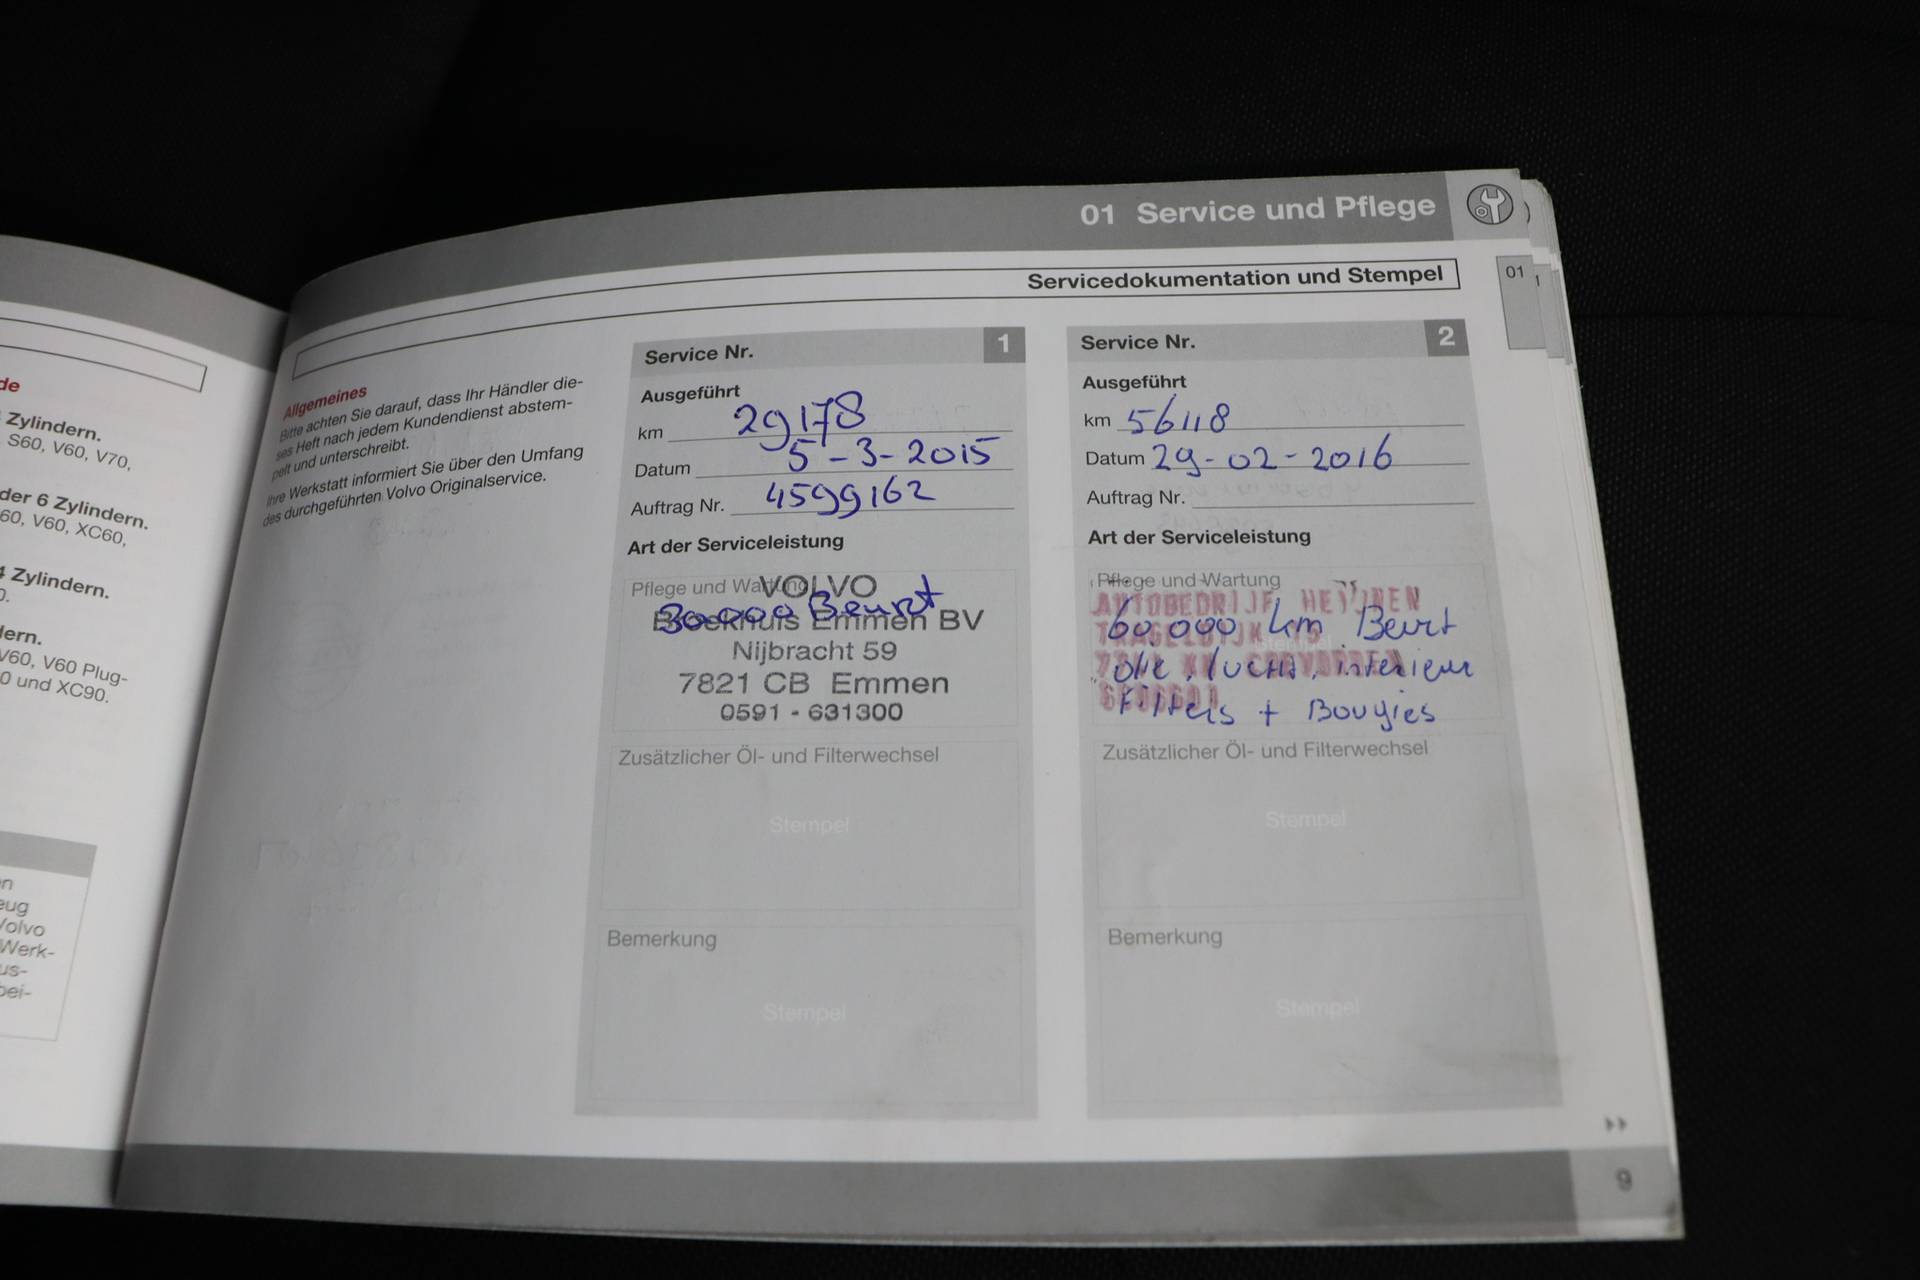 de
Zylindern.
S60, V60, V70,
der 6 Zylindern.
60, V60, XC60,
4 Zylindern.
0.
dern.
V60, V60 Plug-
0 und XC90.
en
eug
Volvo
Werk-
us-
bei-
01 Service und Pflege
Servicedokumentation und Stempel
01
Allgemeines
Bitte achten Sie darauf, dass Ihr Händler die-
ses Heft nach jedem Kundendienst abstem-
pelt und unterschreibt.
Ihre Werkstatt informiert Sie über den Umfang
des durchgeführten Volvo Originalservice.
Service Nr. 1
Ausgeführt
km 29178
Datum 5-3-2015
Auftrag Nr. 4599162
Art der Serviceleistung
Pflege und Wartung
VOLVO
30.000 Beurt
Broekhuis Emmen BV
Nijbracht 59
7821 CB Emmen
0591 - 631300
Zusätzlicher Öl- und Filterwechsel
Stempel
Bemerkung
Stempel
Service Nr. 2
Ausgeführt
km 56118
Datum 29-02-2016
Auftrag Nr.
Art der Serviceleistung
Pflege und Wartung
AUTOBEDRIJF HEIJNEN
60.000 km Beurt
olie, lucht, interieur
Filters + Bougies
Zusätzlicher Öl- und Filterwechsel
Stempel
Bemerkung
Stempel
9